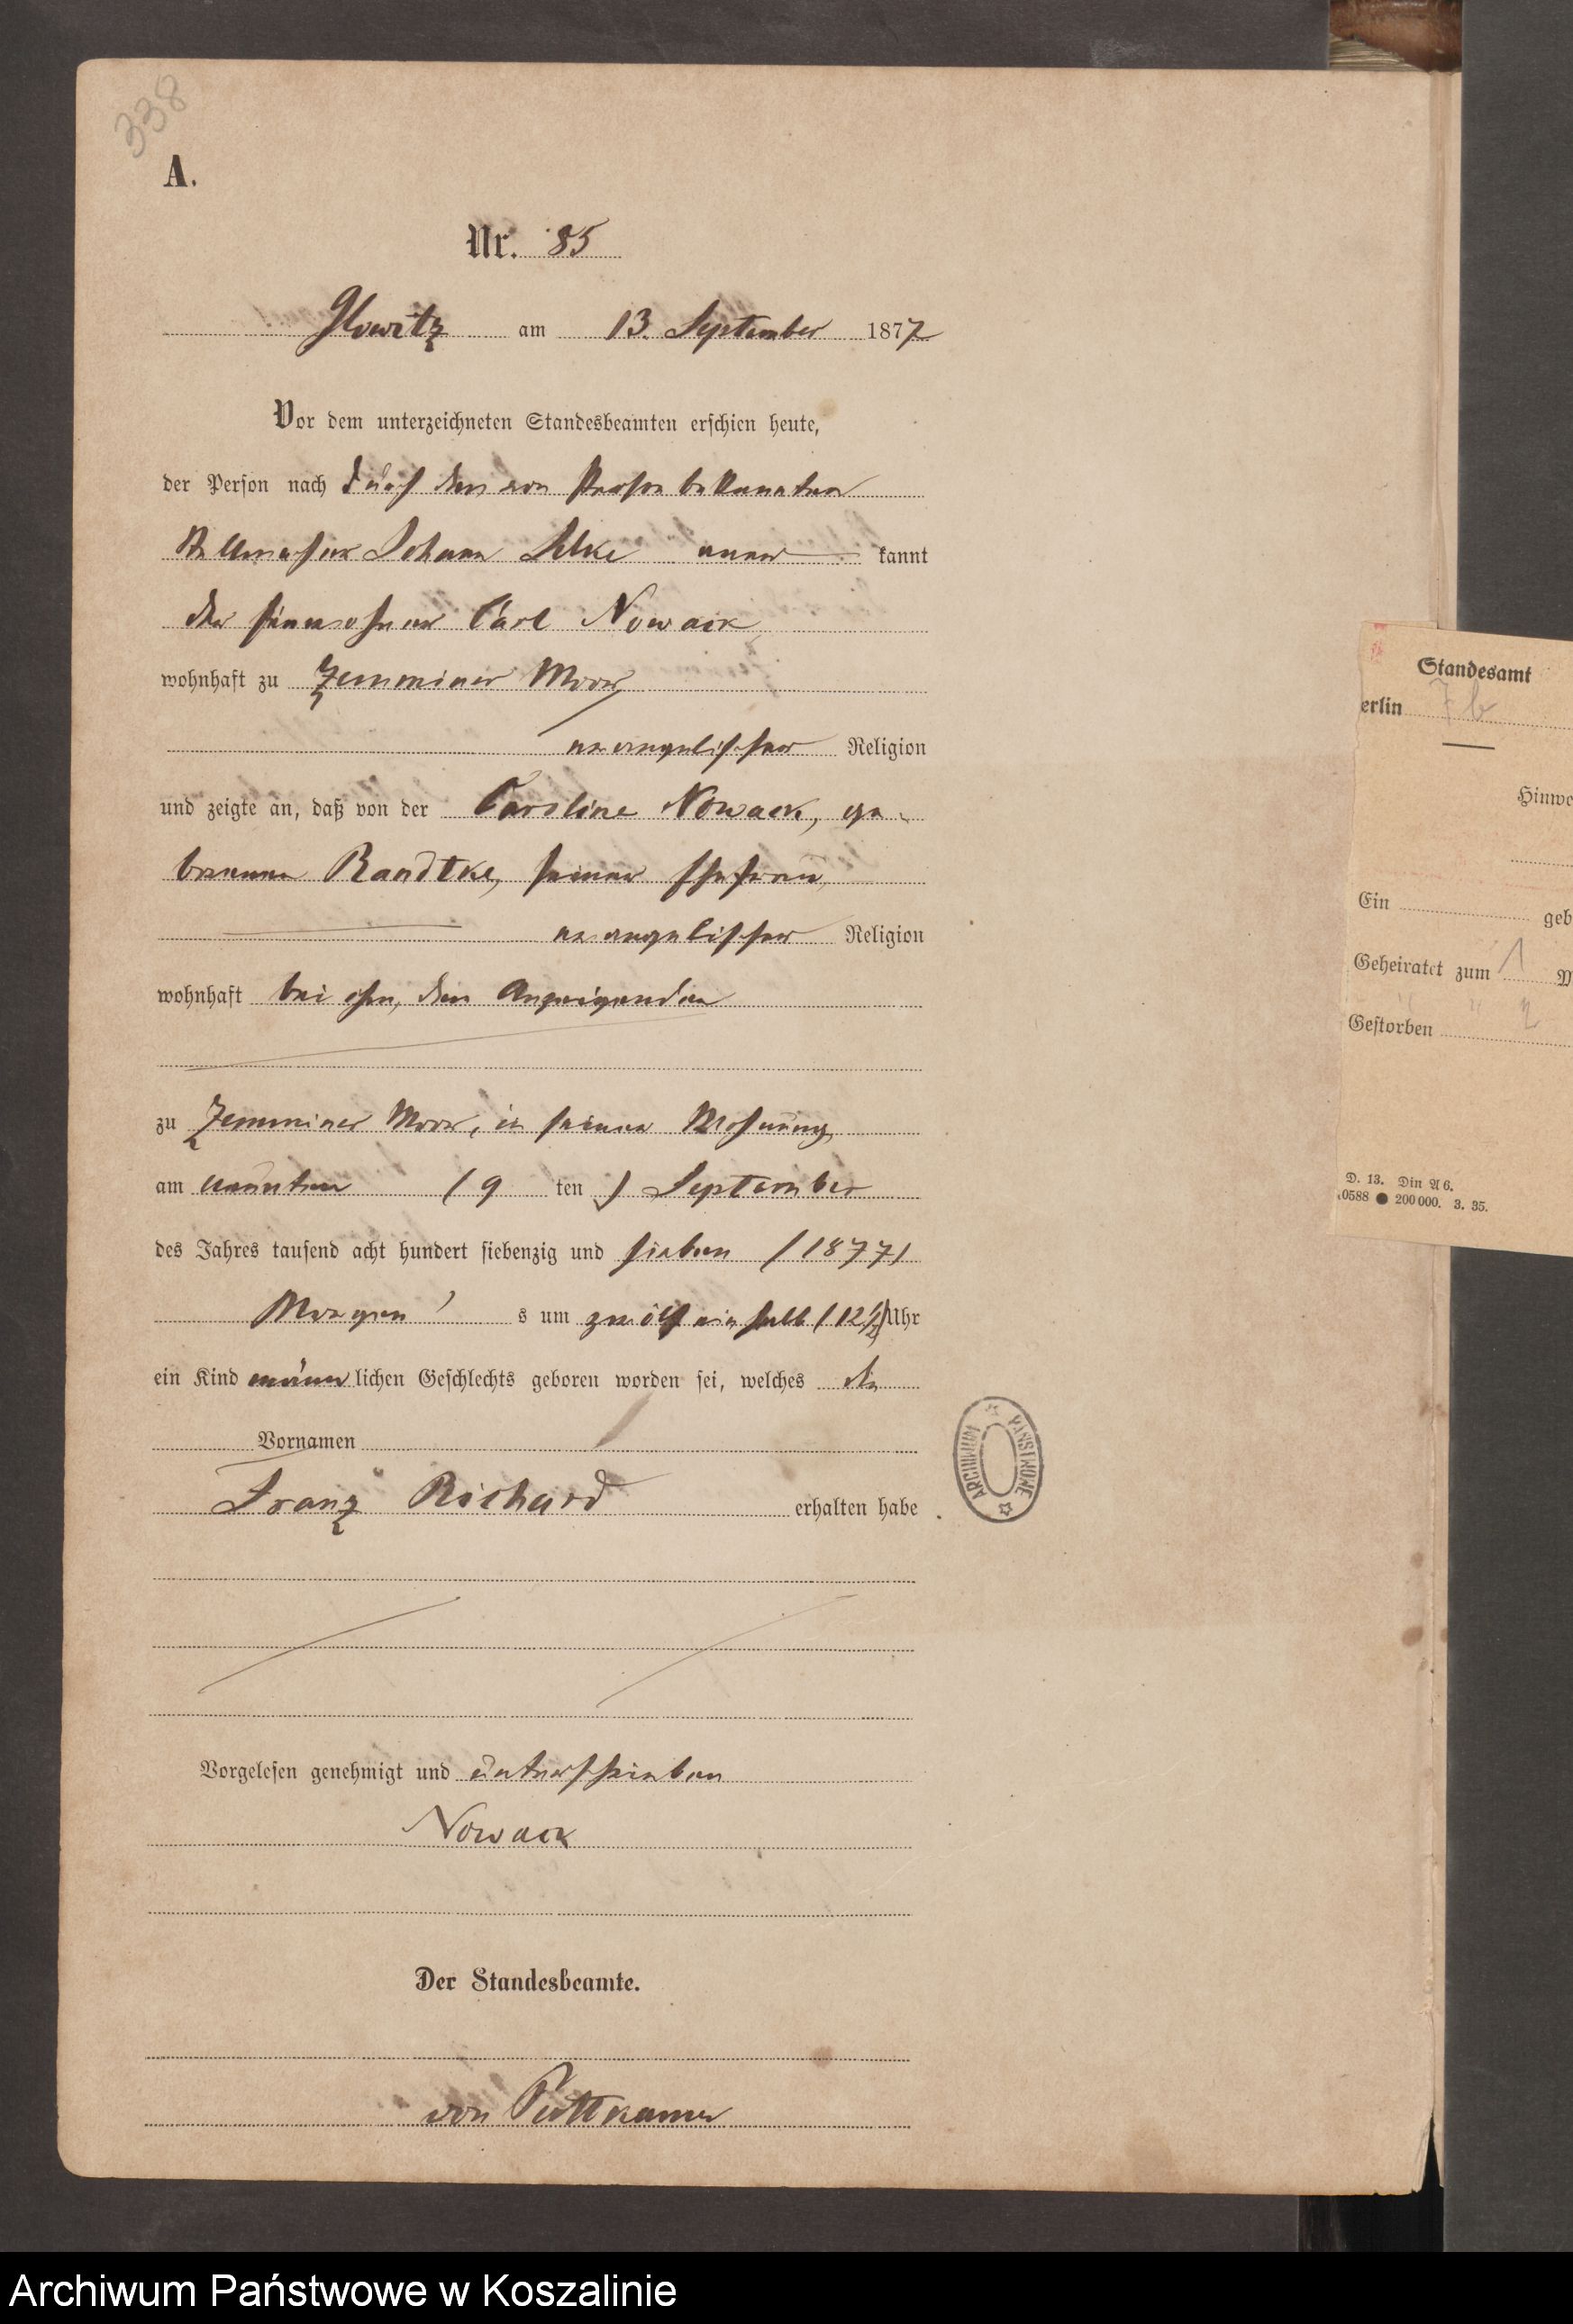 338
A.
Nr. 85
Glowitz am 13. September 1877
Vor dem unterzeichneten Standesbeamten erschien heute,
der Person nach durch den von Person bekannten
Stellmacher Johann Selke aner kannt
der Einwohner Carl Nowack
wohnhaft zu Zemminer Moor
evangelischer Religion
und zeigte an, daß von der Caroline Nowack, ge-
borenen Randtke, seiner Ehefrau,
evangelischer Religion
wohnhaft bei ihm, dem Anzeigenden
zu Zemminer Moor, in seiner Wohnung
am neunten (9 ten) September
des Jahres tausend acht hundert siebenzig und sieben (1877)
Morgen s um zwölf ein halb (12 1/2) Uhr
ein Kind männ lichen Geschlechts geboren worden sei, welches die
Vornamen
Franz Richard erhalten habe.
Vorgelesen genehmigt und unterschrieben
Nowack
Der Standesbeamte.
von Puttkamer
ARCHIWUM PAŃSTWOWE
Standesamt
erlin 7b
Hinwe
Ein geb
Geheiratet zum 1 M
Gestorben " 2
D. 13. Din A 6.
0588 ● 200 000. 3. 35.
Archiwum Państwowe w Koszalinie